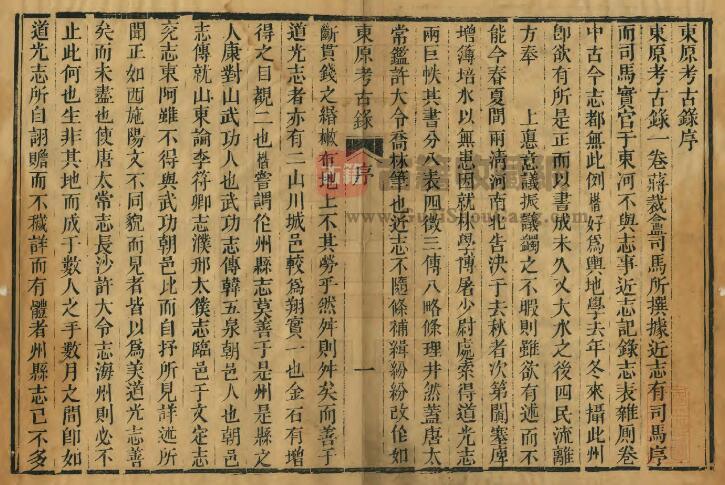 東原考古錄序
東原考古錄一卷蔣薇龕司馬所撰據近志有司馬序
而司馬實官于東河不與志事近志記錄志表雜厠卷
中古今志都無此例楷好為輿地學去年冬來攝此州
即欲有所是正而以書成未久又大水之後四民流離
方奉　上恩忘議振議蠲之不暇則雖欲有述而不
能今春夏間兩渦河南北告決于去秋者次第闔塞庳
增薄培水以無患因就林學博屠少尉處索得道光志
兩巨帙其書分八表四徵三傳八略條理井然蓋唐太
常鑑許大令喬林筆也近志不隨條補緝紛紛改作如
東原考古錄
序
一
斷貫錢之緡檄布地上不其勞乎然舛則舛矣而善于
道光志者亦有二山川城邑較為翔實一也金石有增
得之目覩二也楷嘗謂作州縣志莫善于是州是縣之
人康對山武功人也武功志傳韓五泉朝邑人也朝邑
志傳就山東論李符卿志濮邢太僕志臨邑于文定志
兖志東阿雖不得與武功朝邑比而自抒所見詳述所
聞正如西施陽文不同貌而見者皆以為美道光志善
矣而未盡也使唐太常志長沙許大令志海州則必不
止此何也生非其地而成于數人之手數月之間即如
道光志所自詡贍而不穢詳而有體者州縣志已不多